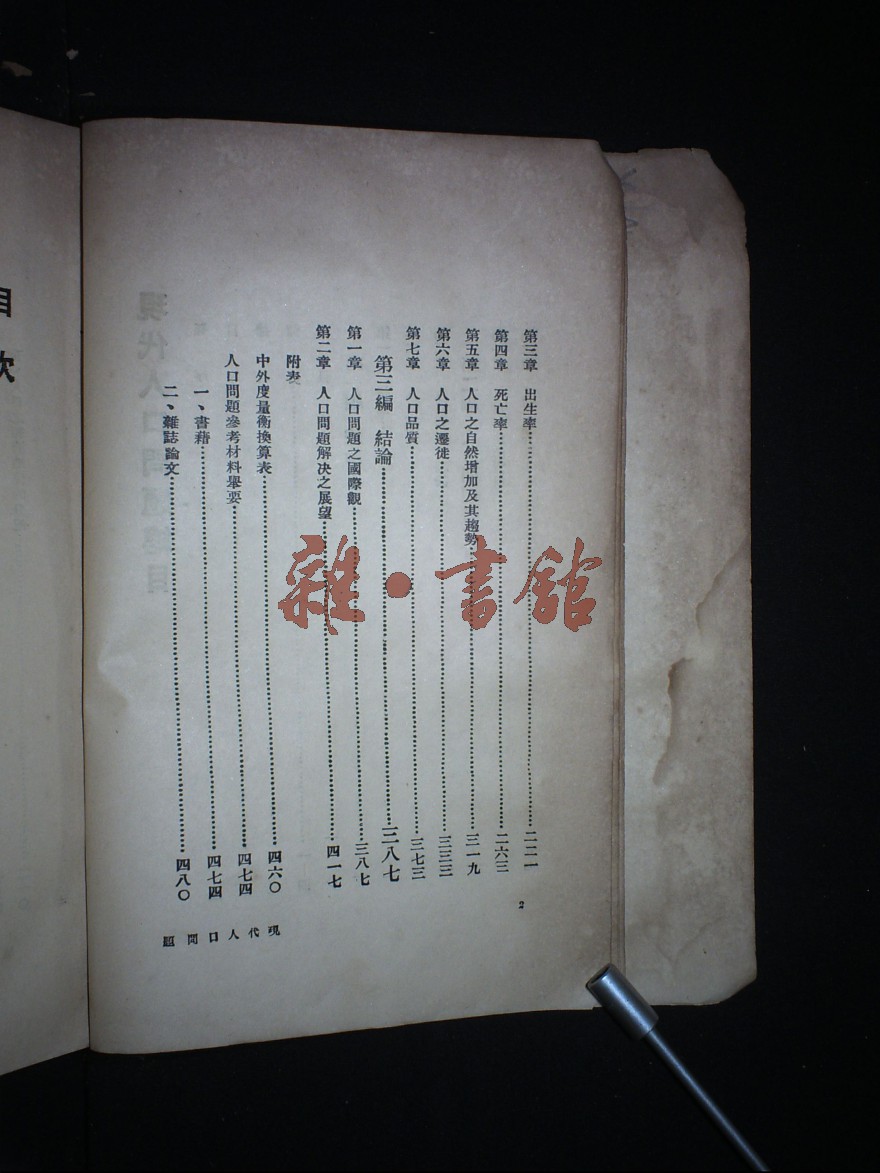 第三章 出生率……二二一
第四章 死亡率……二六三
第五章 人口之自然增加及其趨勢……三一九
第六章 人口之遷徙……三三三
第七章 人口品質……三七三
第三編 結論……三八七
第一章 人口問題之國際觀……三八七
第二章 人口問題解决之展望……四一七
附表
中外度量衡換算表……四六〇
人口問題參考材料舉要……四七四
一、書藉……四七四
二、雜誌論文……四八〇
2
現代人口問題
雜·書館
目次